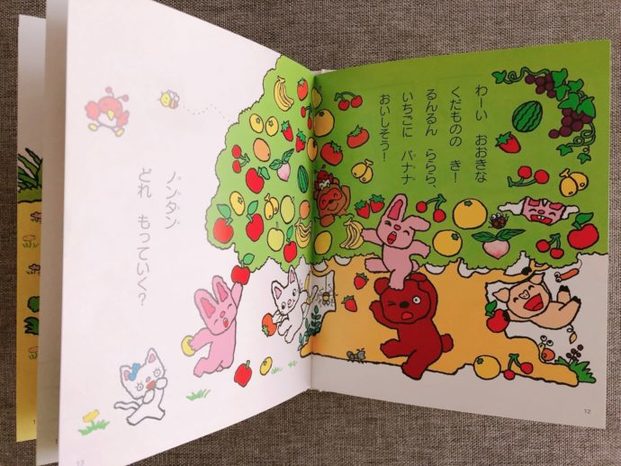 わーい おおきな
くだものの き！
るんるん ららら、
いちごに バナナ
おいしそう！
12
ノンタン
どれ もっていく？
13